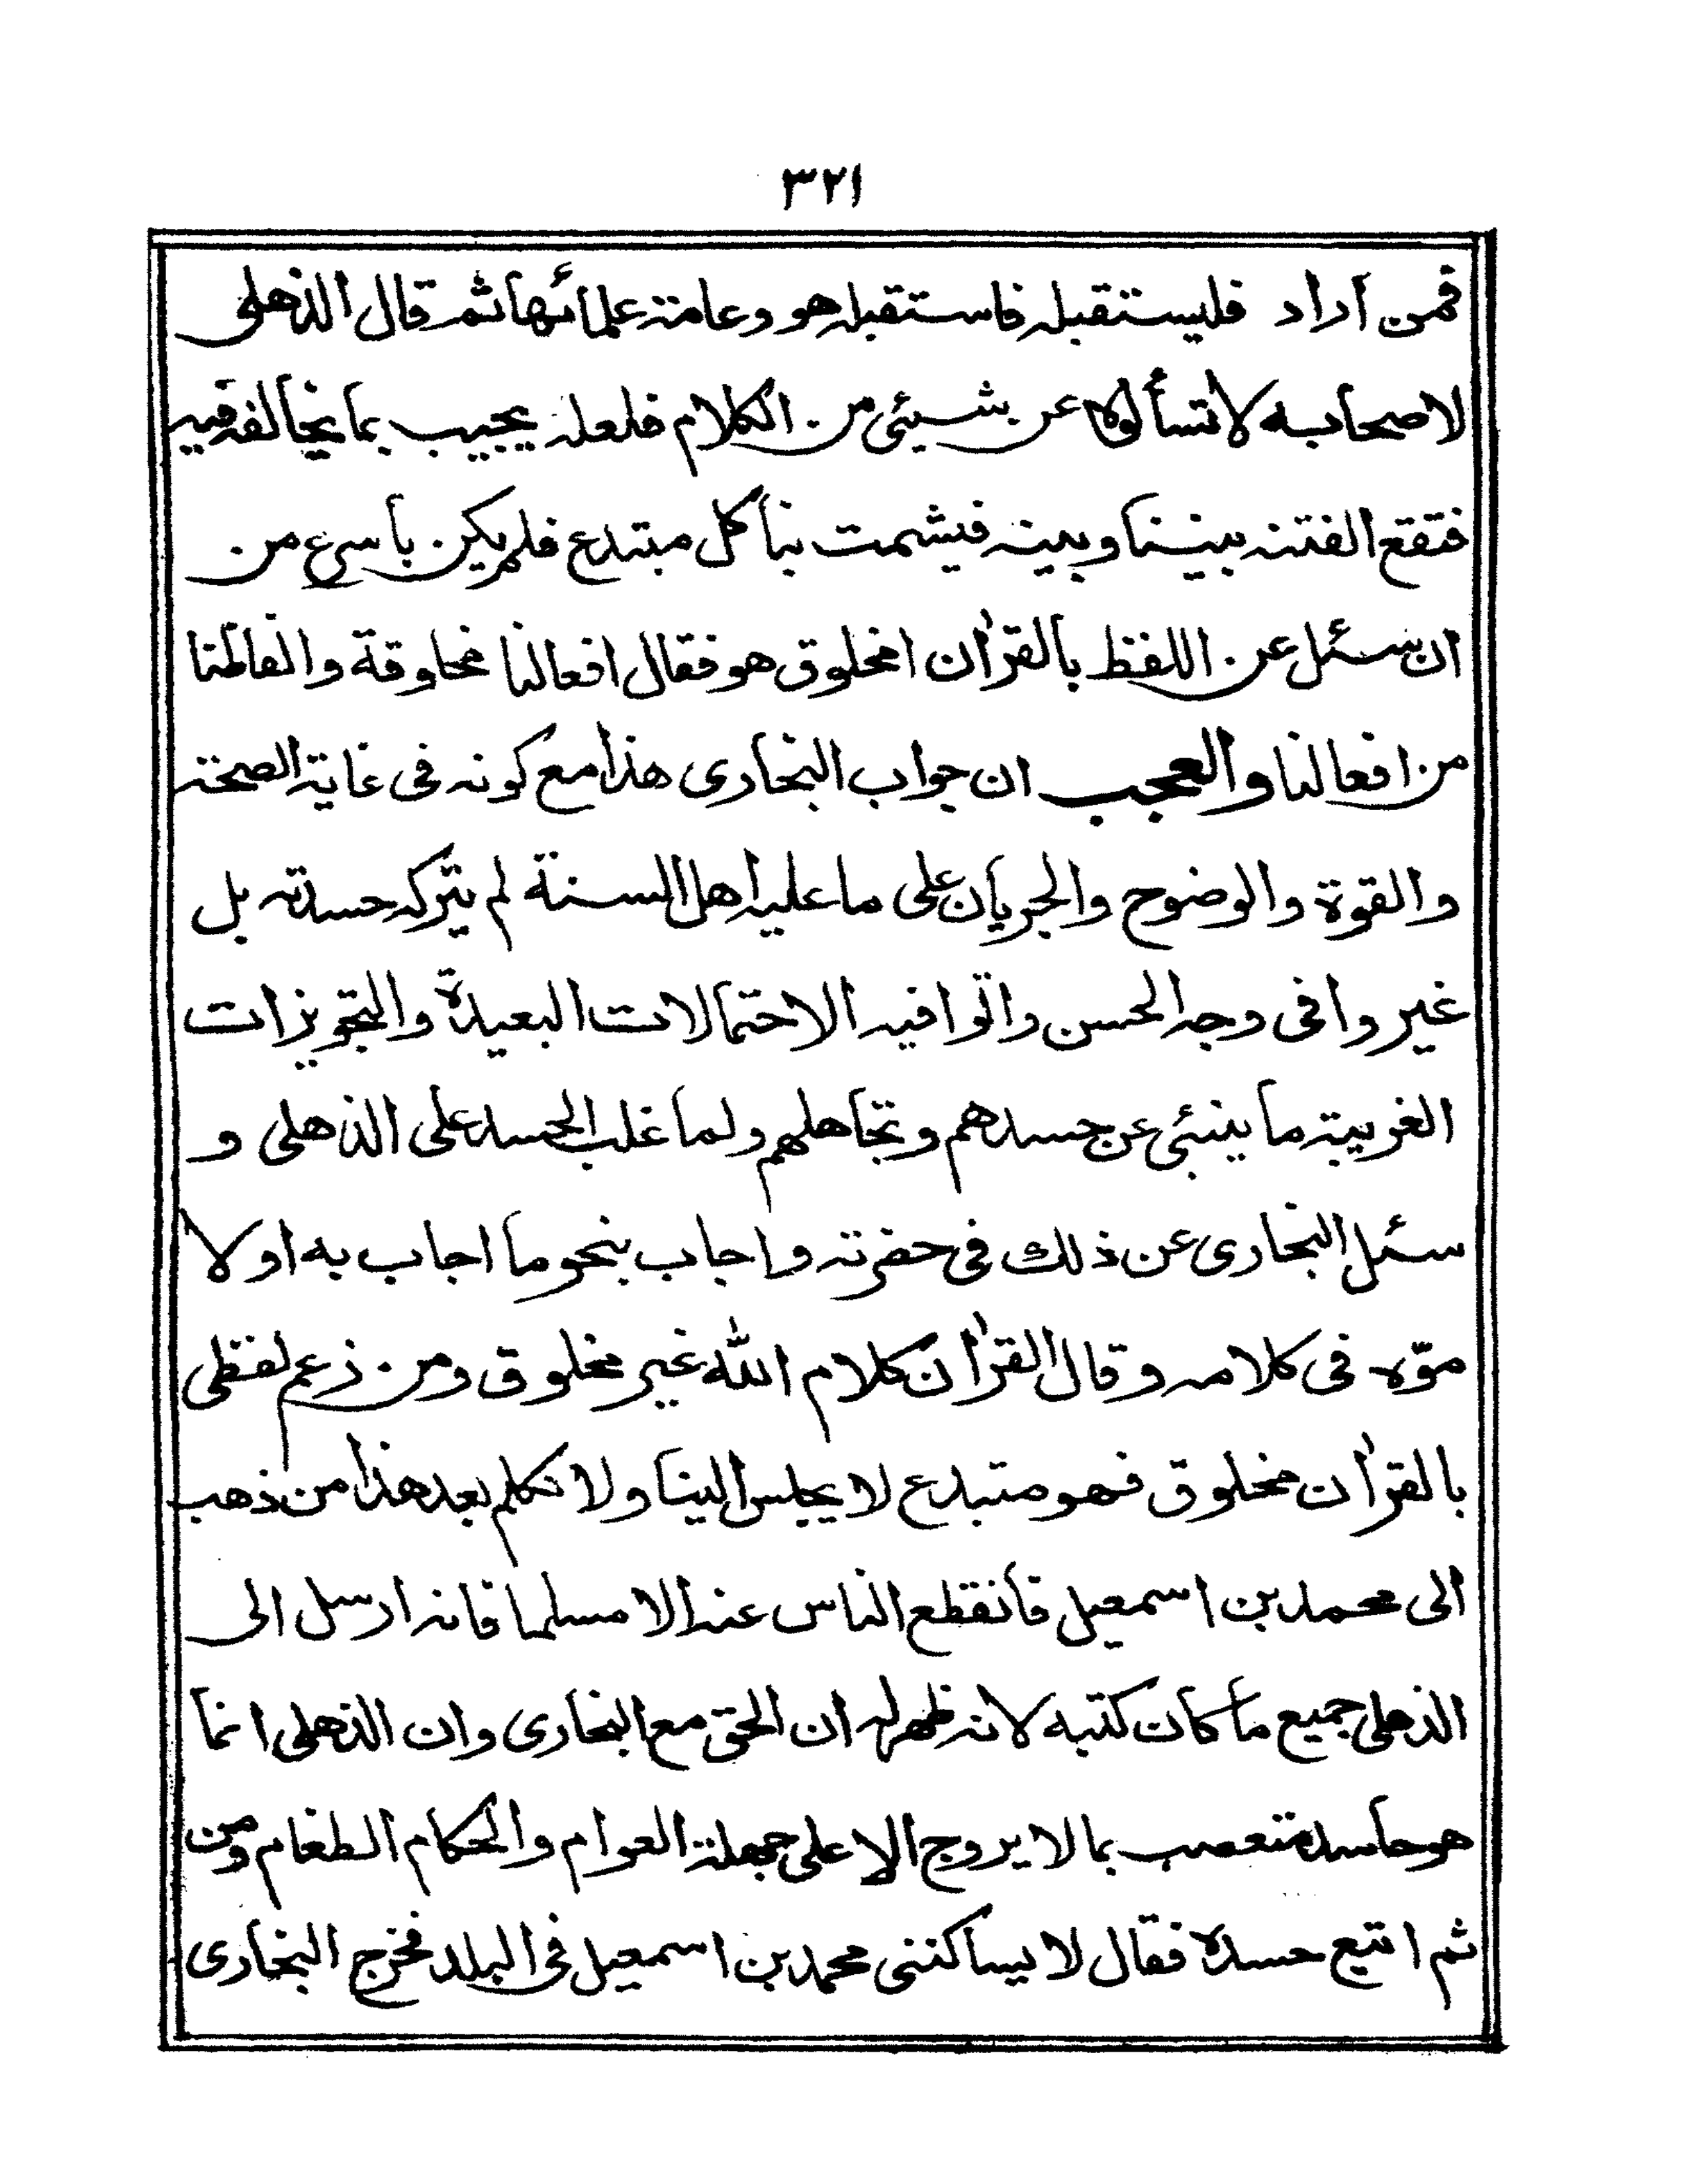 ٣٢١
فمن أراد فليستقبله فاستقبله هو وعامة علمائها ثم قال الذهلى
لاصحابه لاتسألوه عن شيئى من الكلام فلعله يجيب بما يخالف فيه
فتقع الفتنه بيننا وبينه فيشمت بنا كل مبتدع فلم يكن بأسرع من
ان سئل عن اللفظ بالقرأن امخلوق هو فقال افعالنا مخلوقة والفاظنا
من افعالنا والعجب ان جواب البخارى هذا مع كونه فى غاية الصحة
والقوة والوضوح والجريان على ما عليه اهل السنة لم يتركه حسدته بل
غيروا فى وجه الحسن واتوا فيه الاحتمالات البعيدة والتجويزات
الغريبة ما ينبئى عن حسدهم وتجاهلهم ولما غلب الحسد على الذهلى و
سئل البخارى عن ذلك فى حضرته واجاب بنحو ما اجاب به اولا
موّه فى كلامه وقال القرأن كلام الله غير مخلوق ومن زعم لفظى
بالقرأن مخلوق فهو متبدع لا يجلس الينا ولا نكلم بعد هذا من ذهب
الى محمد بن اسمعيل فانقطع الناس عنه الا مسلما فانه ارسل الى
الذهلى جميع ما كان كتبه لانه ظهر له ان الحق مع البخارى وان الذهلى انما
هو حاسد متعصب بما لا يروج الا على جهلة العوام والحكام الطغام ومن
ثم اتبع حسده فقال لا يساكننى محمد بن اسمعيل فى البلد فخرج البخارى